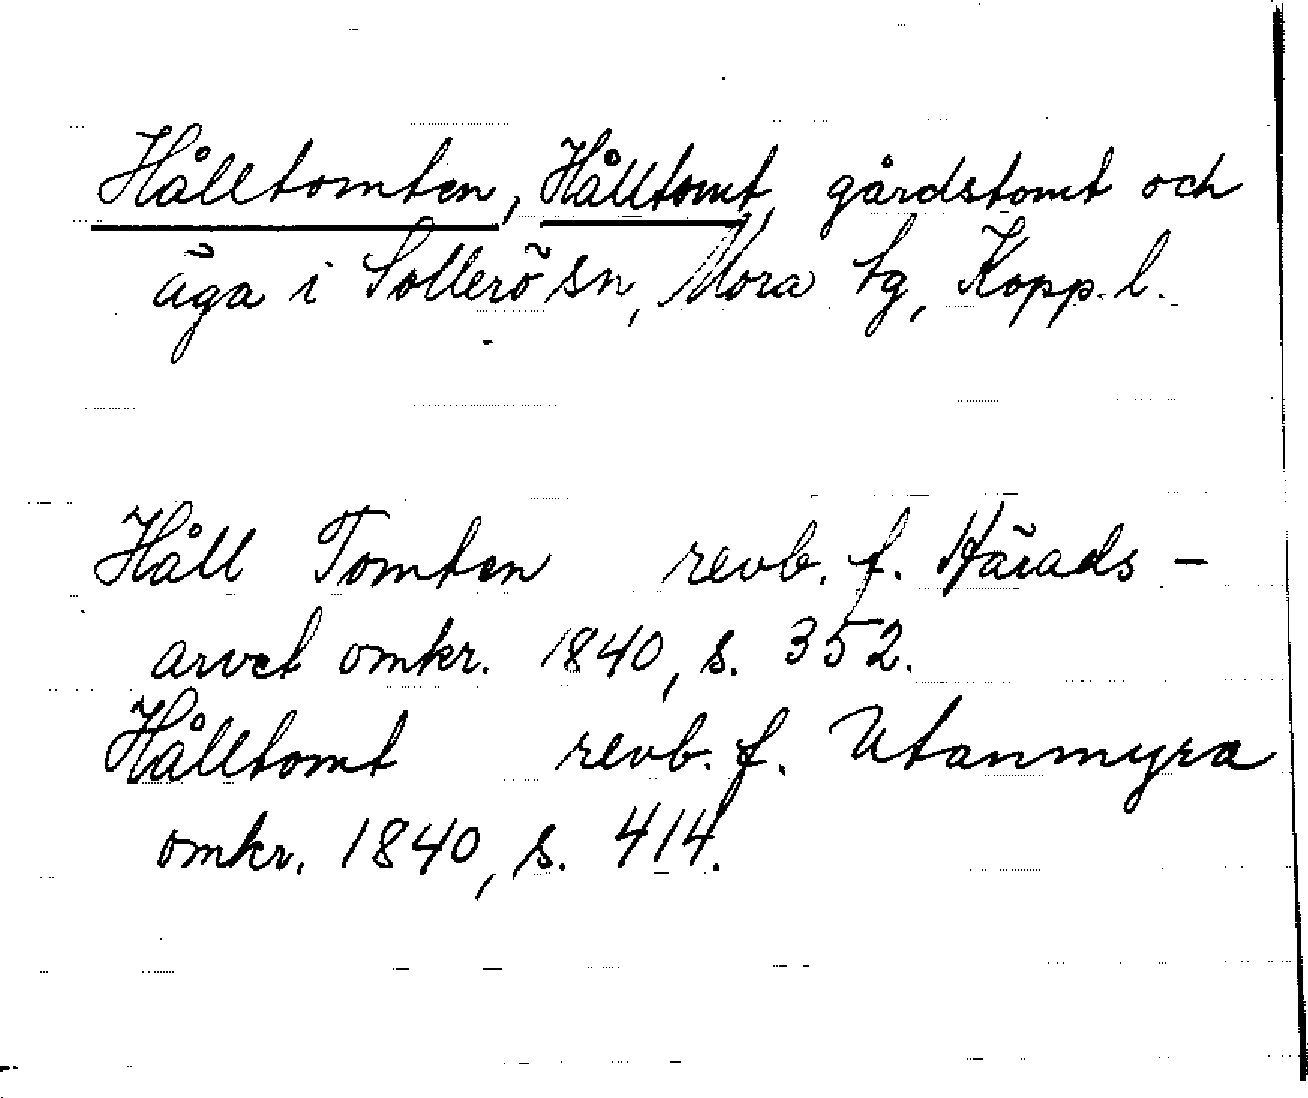 Hålltomten, Hålltomt, gårdstomt och
äga i Sollerö sn, Mora tg, Kopp. l.
Håll Tomten revb. f. Härads-
arvet omkr. 1840, s. 352.
Hålltomt revb. f. Utanmyra
omkr. 1840, s. 414.